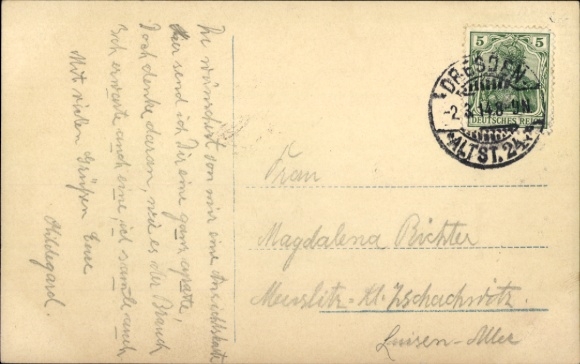 Du wünschest von mir eine Ansichtskarte
Hier send ich Dir eine ganz aparte,
Doch denke daran, wie es der Brauch
Ich erwarte auch eine, ich samle auch
Mit vielen Grüßen Eure
Hildegard.
5 5
DEUTSCHES REICH
DRESDEN
-2.3.14.8-9N.
ALTST. 24
Frau
Magdalena Richter
Meuslitz-Kl. Zschachwitz.
Luisen-Allee